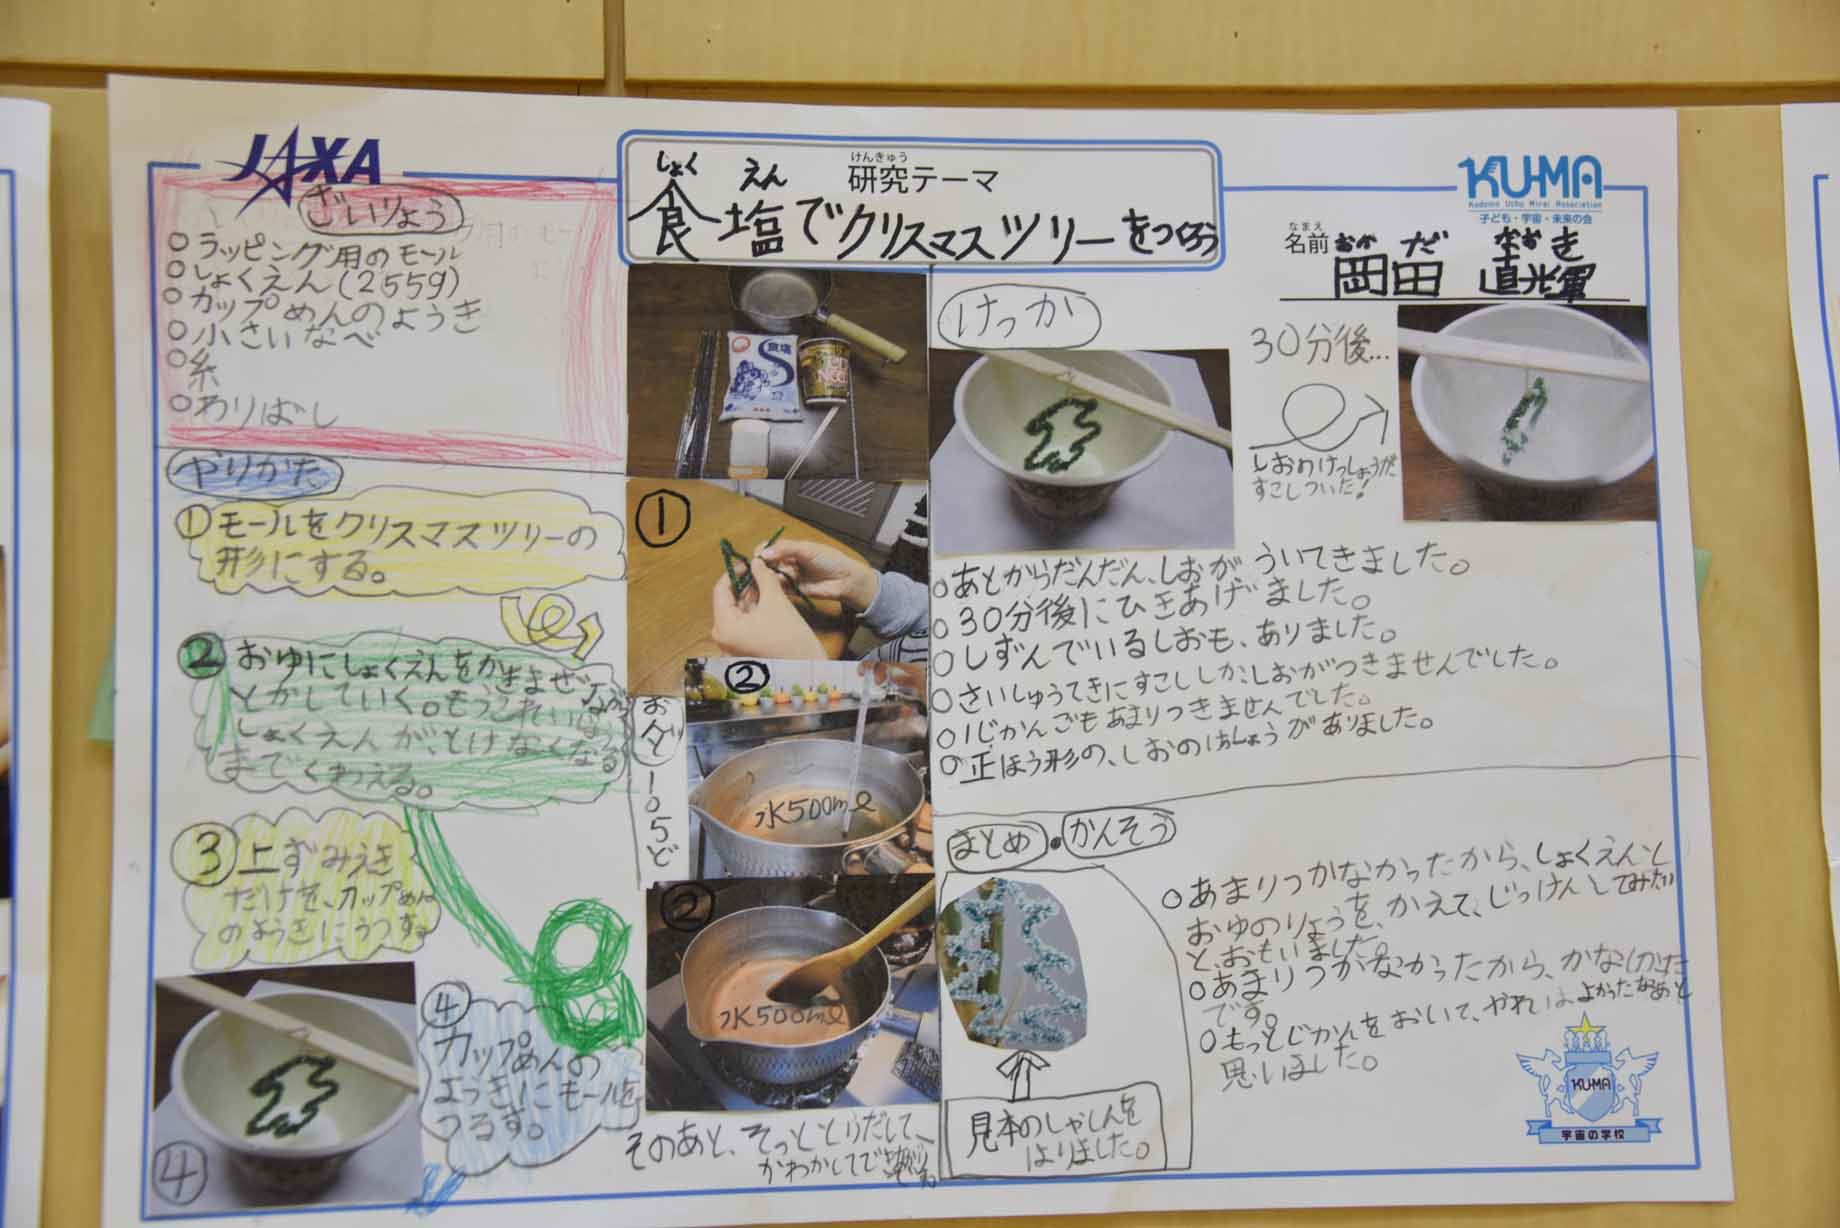 JAXA
けんきゅう
研究テーマ
しょく えん
食塩でクリスマスツリーをつくろう
KU-MA
Kodomo Uchu Mirai Association
子ども・宇宙・未来の会
なまえ
名前
おかだ なおき
岡田 直輝
ざいりょう
○ラッピング用のモール
○しょくえん(255g)
○カップめんのようき
○小さいなべ
○糸
○わりばし
やりかた
①モールをクリスマスツリーの
形にする。
②おゆにしょくえんをかきまぜながら
とかしていく。もうこれいじょう
しょくえんが、とけなくなる
までくわえる。
③上ずみえき
だけを、カップめん
のようきにうつす。
④
カップめんの
ようきにモールを
つるす。
④
食塩
①
②
おんど105ど
水500mℓ
②
水500mℓ
そのあと、そっととりだして、
かわかして
けっか
30分後...
しおのけっしょうが
すこしついた!
○あとからだんだん、しおがういてきました。
○30分後にひきあげました。
○しずんでいるしおも、ありました。
○さいしゅうてきにすこししかしおがつきませんでした。
○1じかんごもあまりつきませんでした。
○正ほう形の、しおのけっしょうがありました。
まとめ・かんそう
見本のしゃしんを
はりました。
○あまりつかなかったから、しょくえんと
おゆのりょうを、かえて、じっけんしてみたい
と、おもいました。
○あまりつかなかったから、かなしかった
です。
○もっとじかんをおいて、やればよかったなあと
思いました。
KU-MA
宇宙の学校